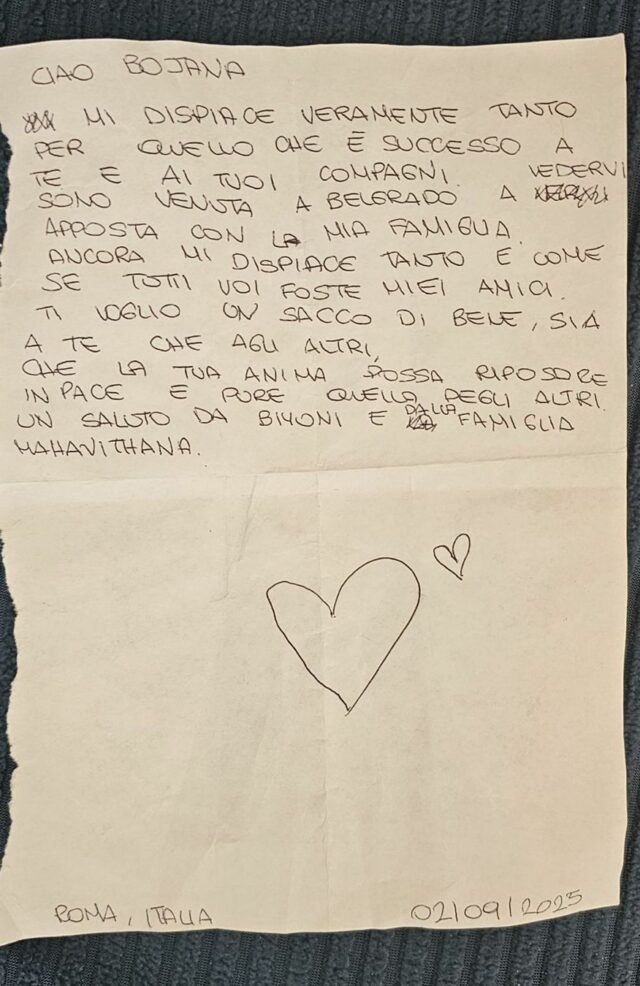 CIAO BOJANA
MI DISPIACE VERAMENTE TANTO
PER QUELLO CHE È SUCCESSO A
TE E AI TUOI COMPAGNI.
SONO VENUTA A BELGRADO A VEDERVI
APPOSTA CON LA MIA FAMIGLIA.
ANCORA MI DISPIACE TANTO E COME
SE TUTTI VOI FOSTE MIEI AMICI.
TI VOGLIO UN SACCO DI BENE, SIA
A TE CHE AGLI ALTRI,
CHE LA TUA ANIMA POSSA RIPOSORE
IN PACE E PURE QUELLA DEGLI ALTRI.
UN SALUTO DA BIYONI E DALLA FAMIGLIA
MAHAVITHANA.
ROMA, ITALIA
02/09/2025